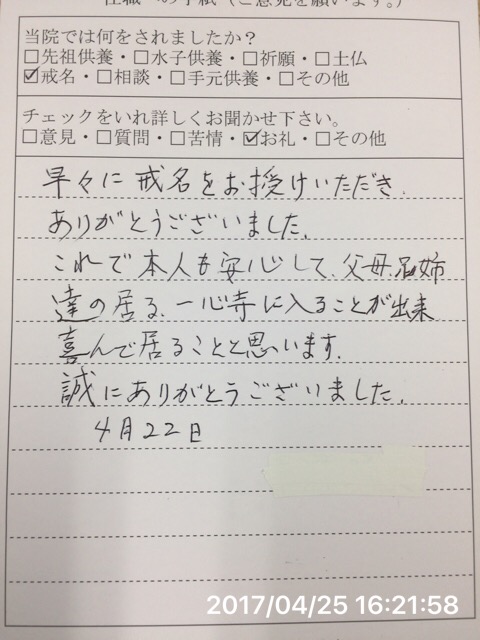 住職への手紙（ご意見を願います。）
当院では何をされましたか？
□先祖供養・□水子供養・□祈願・□土仏
☑戒名・□相談・□手元供養・□その他
チェックをいれ詳しくお聞かせ下さい。
□意見・□質問・□苦情・☑お礼・□その他
早々に戒名をお授けいただき
ありがとうございました。
これで本人も安心して、父母兄姉
達の居る、一心寺に入ることが出来
喜んで居ることと思います。
誠にありがとうございました。
4月22日
2017/04/25 16:21:58